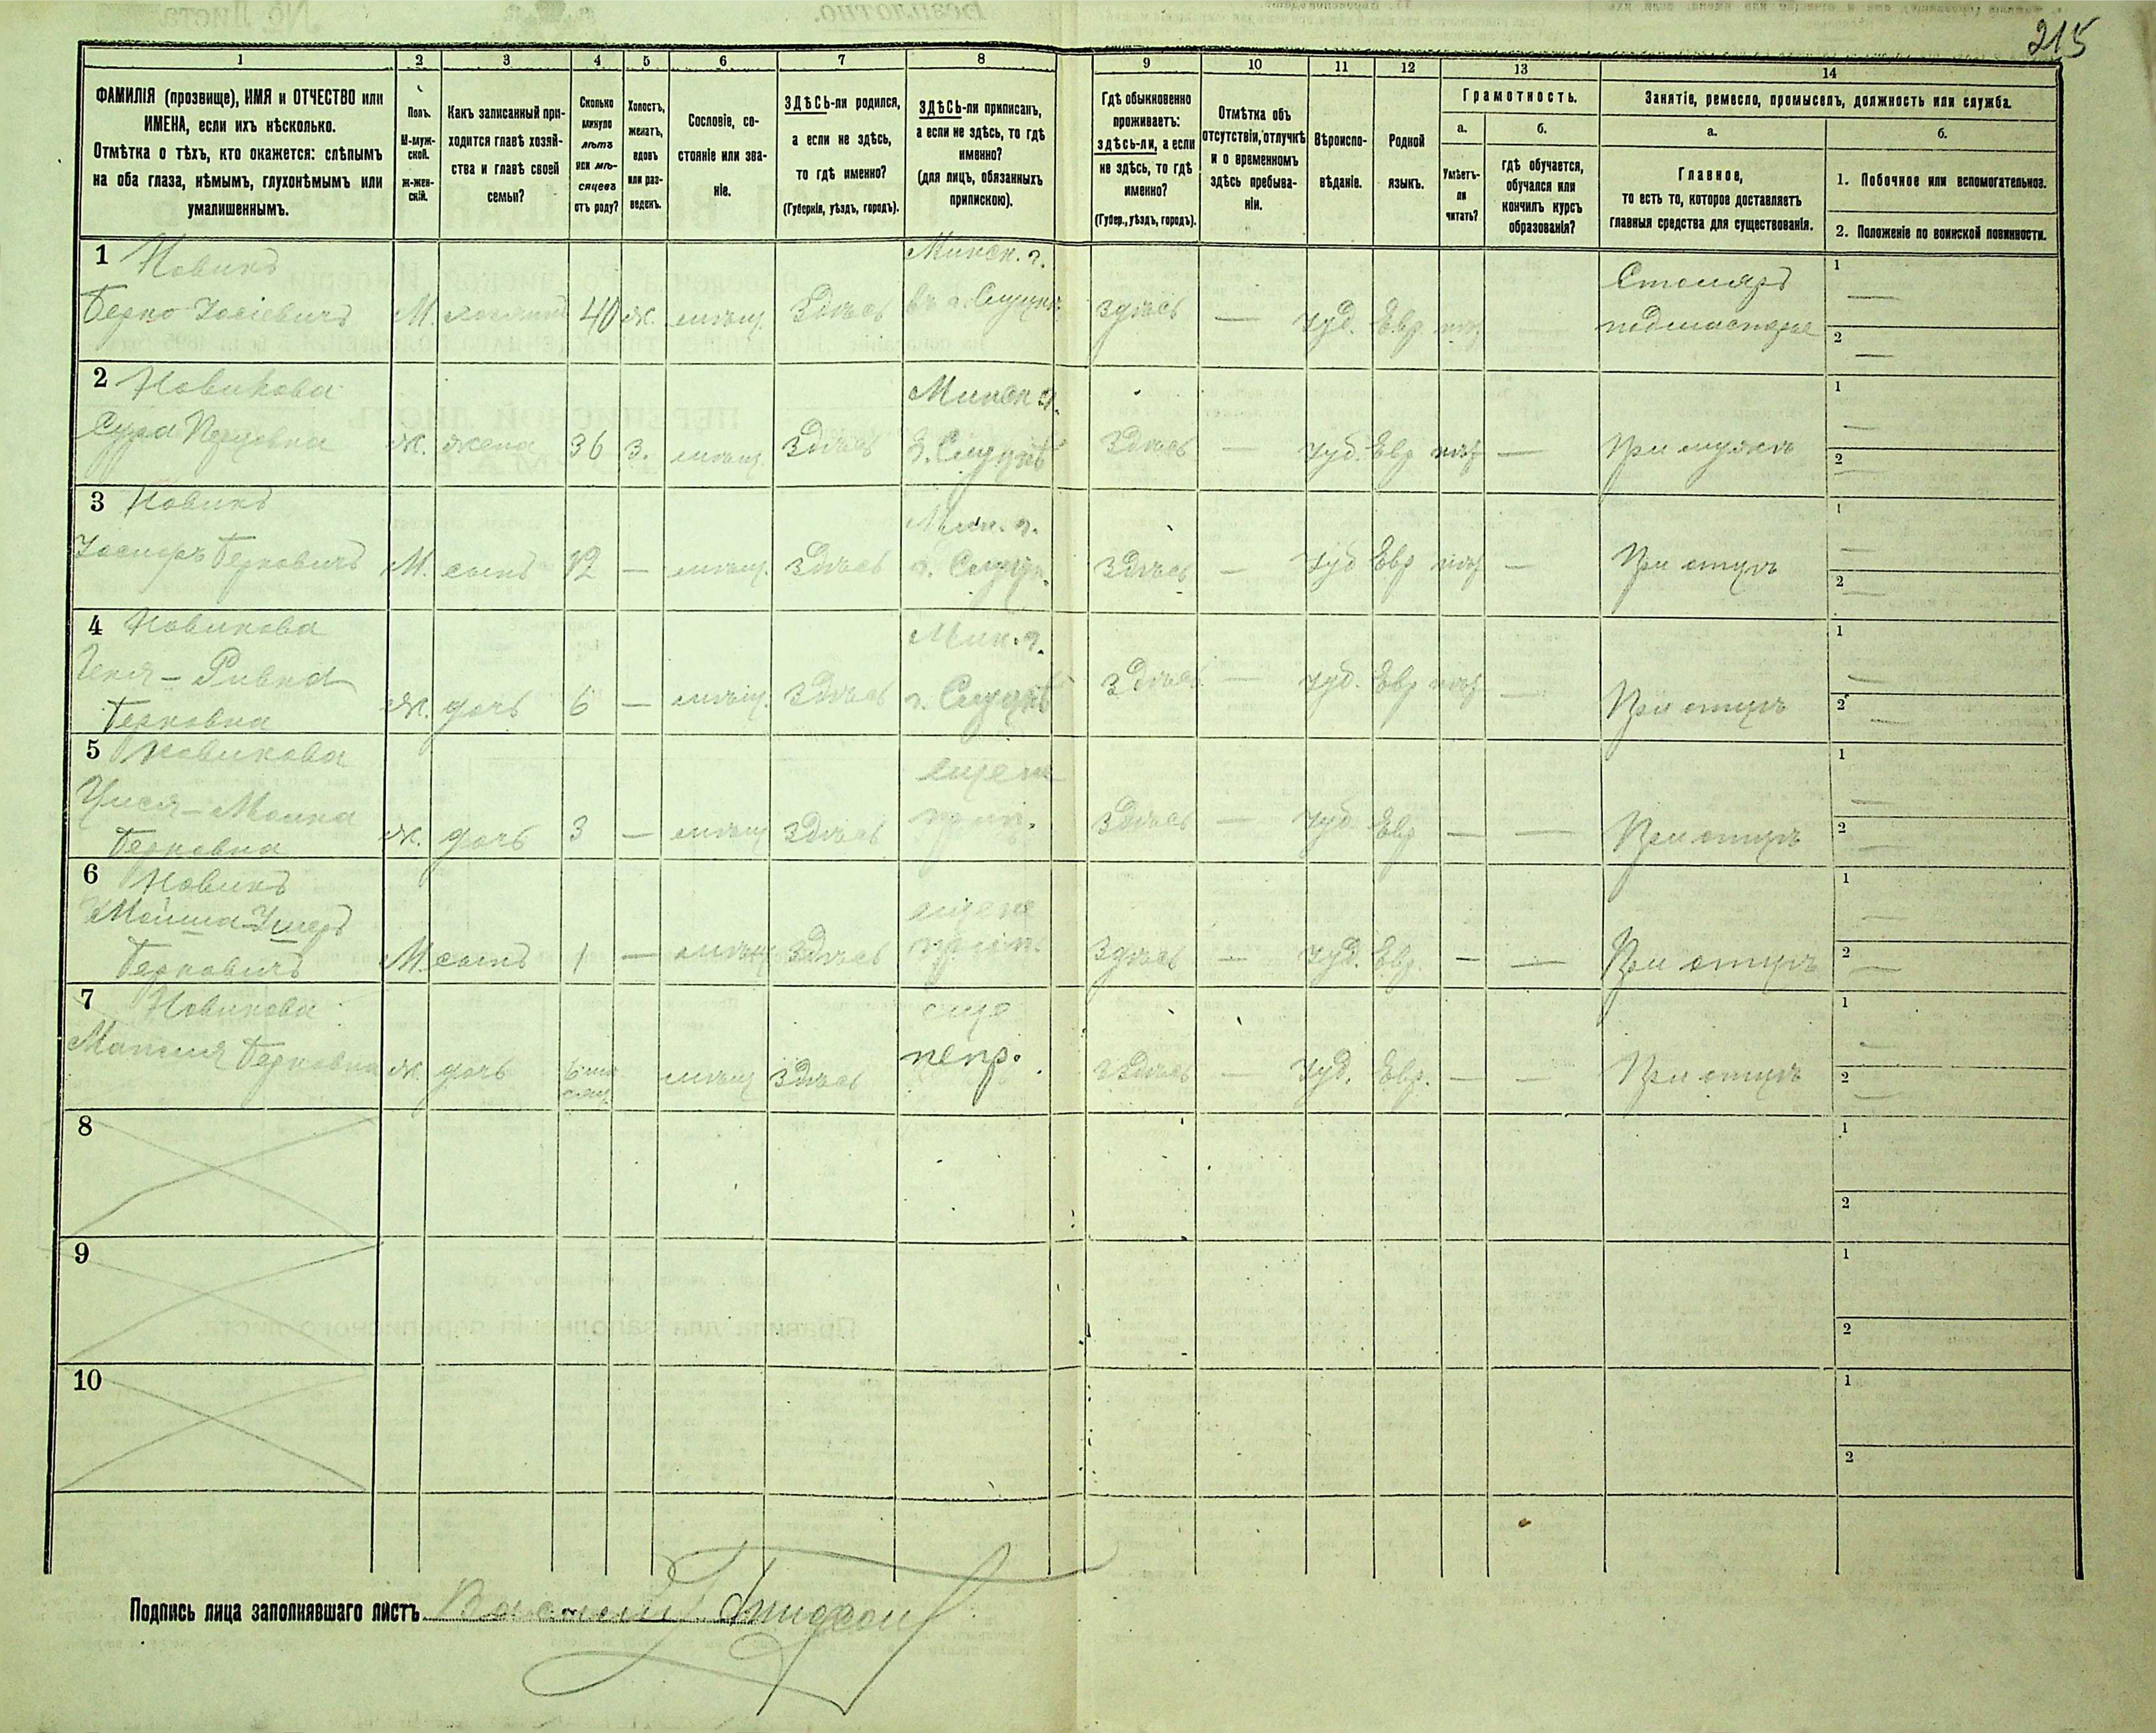 215
1 2 3 4 5 6 7 8 9 10 11 12 13 14
ФАМИЛІЯ (прозвище), ИМЯ и ОТЧЕСТВО или
ИМЕНА, если ихъ нѣсколько.
Отмѣтка о тѣхъ, кто окажется: слѣпымъ
на оба глаза, нѣмымъ, глухонѣмымъ или
умалишеннымъ.
Полъ.
М-муж-
ской.
Ж-жен-
скій.
Какъ записанный при-
ходится главѣ хозяй-
ства и главѣ своей
семьи?
Сколько
минуло
лѣтъ
или мѣ-
сяцевъ
отъ роду?
Холостъ,
женатъ,
вдовъ
или раз-
веденъ.
Сословіе, со-
стояніе или зва-
ніе.
ЗДѢСЬ-ли родился,
а если не здѣсь,
то гдѣ именно?
(Губернія, уѣздъ, городъ).
ЗДѢСЬ-ли приписанъ,
а если не здѣсь, то гдѣ
именно?
(для лицъ, обязанныхъ
припискою).
Гдѣ обыкновенно
проживаетъ:
здѣсь-ли, а если
не здѣсь, то гдѣ
именно?
(Губер., уѣздъ, городъ).
Отмѣтка объ
отсутствіи, отлучкѣ
и о временномъ
здѣсь пребыва-
ніи.
Вѣроиспо-
вѣданіе.
Родной
языкъ.
Грамотность.
а.
Умѣетъ-
ли
читать?
б.
гдѣ обучается,
обучался или
кончилъ курсъ
образованія?
Занятіе, ремесло, промыселъ, должность или служба.
а.
Главное,
то есть то, которое доставляетъ
главныя средства для существованія.
б.
1. Побочное или вспомогательное.
2. Положеніе по воинской повинности.
1 Новикъ Минск. г. Столяръ 1 —
Берко Іосіевичъ М. 40 ж. мѣщ. Здѣсь въ г. Слуцкѣ. здѣсь — Іуд. Евр — подмастерье 2 —
2 Новикова Минск г. 1 —
Сура ж. жена 36 З. мѣщ. Здѣсь г. Слуцкѣ Здѣсь — Іуд. Евр — При мужѣ 2 —
3 Новикъ Мин. г. 1 —
Берковичъ М. сынъ 12 — мѣщ. Здѣсь г. Слуцк. Здѣсь — Іуд Евр — При отцѣ 2 —
4 Новикова Мин. г. 1 —
Ривка ж. дочь 6 — мѣщ. Здѣсь г. Слуцкѣ Здѣсь — Іуд. Евр — При отцѣ 2 —
Берковна
5 Новикова еще не 1 —
ж. дочь 3 — мѣщ Здѣсь Здѣсь — Іуд Евр — — При отцѣ 2 —
Берковна
6 Новикъ еще не 1 —
Мойша
Берковичъ М сынъ 1 — мѣщ Здѣсь Здѣсь — Іуд. Евр. — — При отцѣ 2 —
7 Новикова еще 1 —
Берковна ж. дочь 6 мѣ
сяц. мѣщ Здѣсь непр. Здѣсь — Іуд. Евр. — — При отцѣ 2 —
8 1
2
9 1
2
10 1
2
Подпись лица заполнявшаго листъ